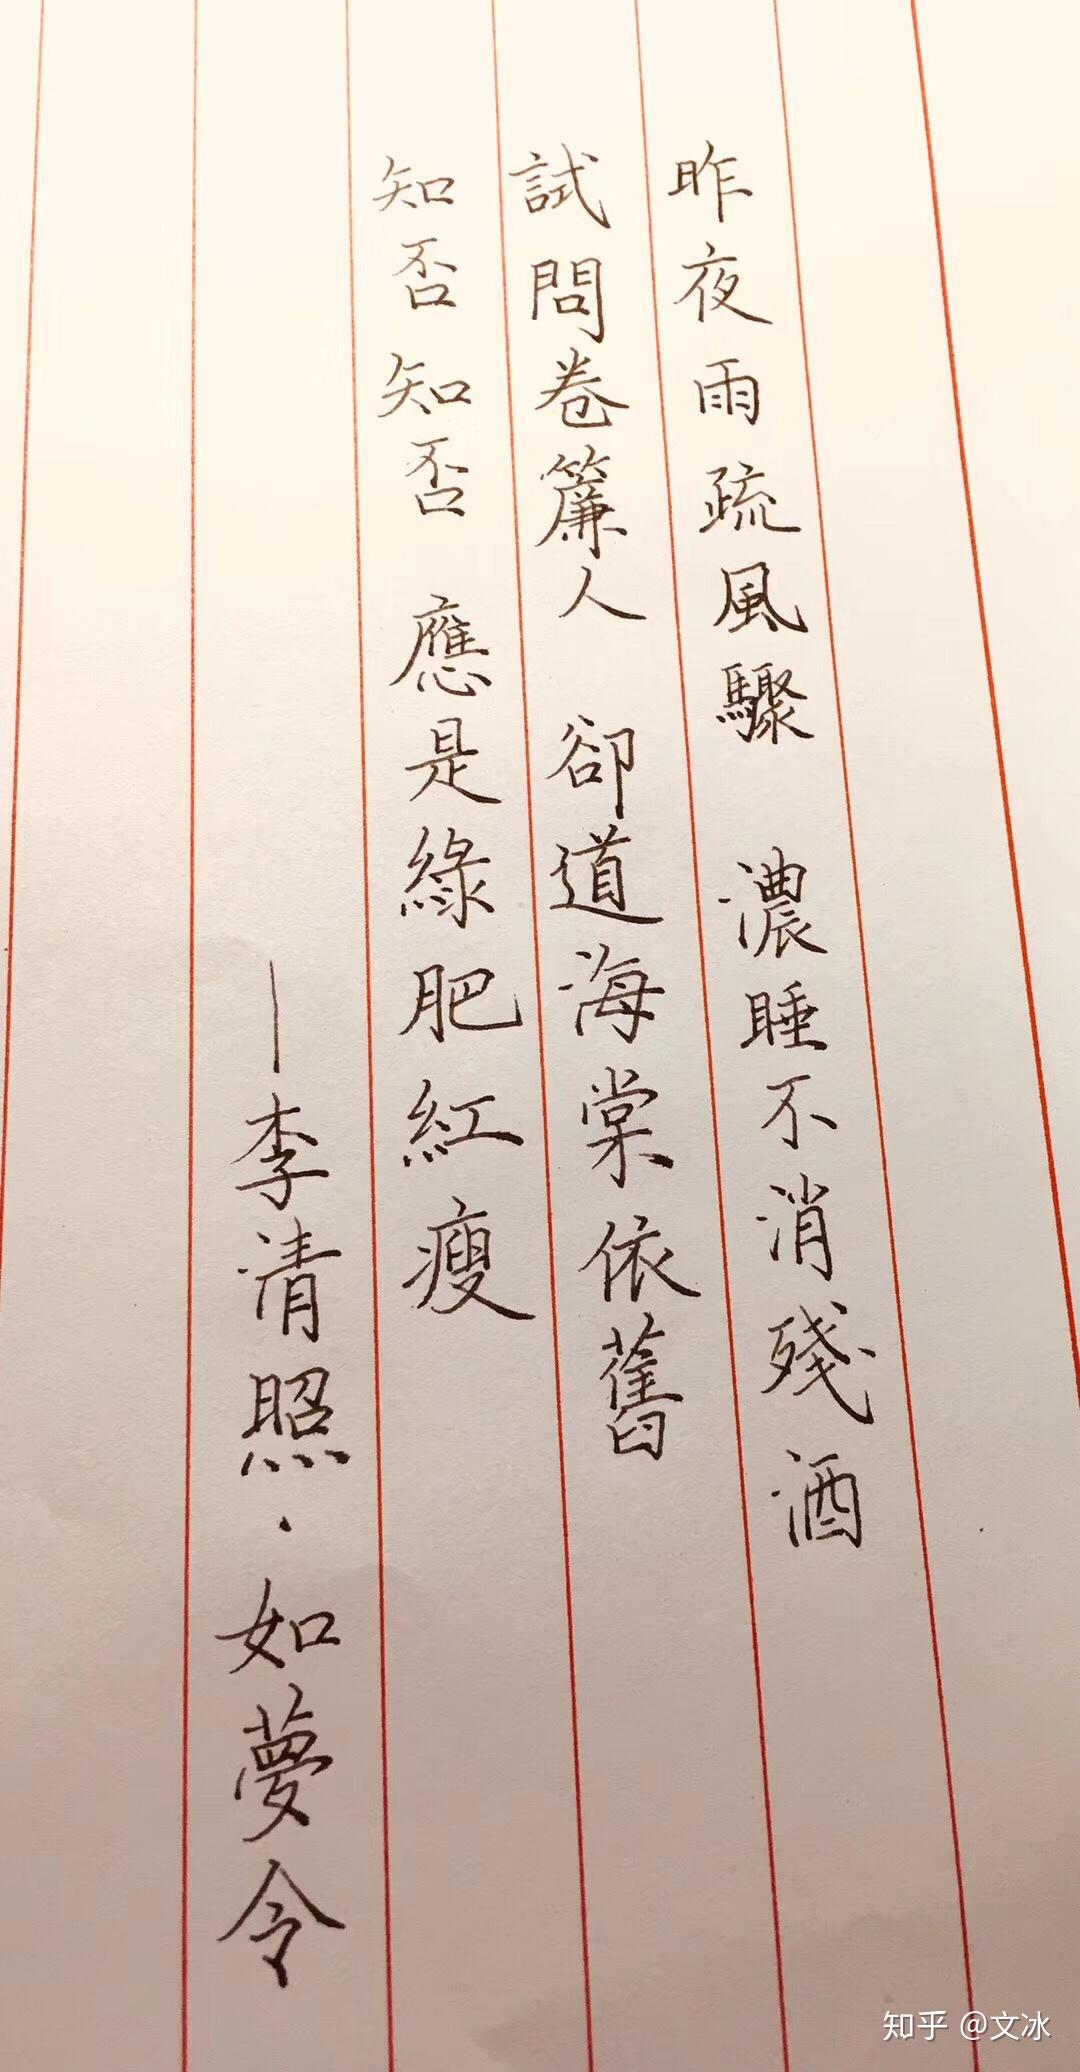 昨夜雨疏風驟 濃睡不消殘酒
試問卷簾人 卻道海棠依舊
知否知否 應是綠肥紅瘦
—李清照·如夢令
知乎 @文冰